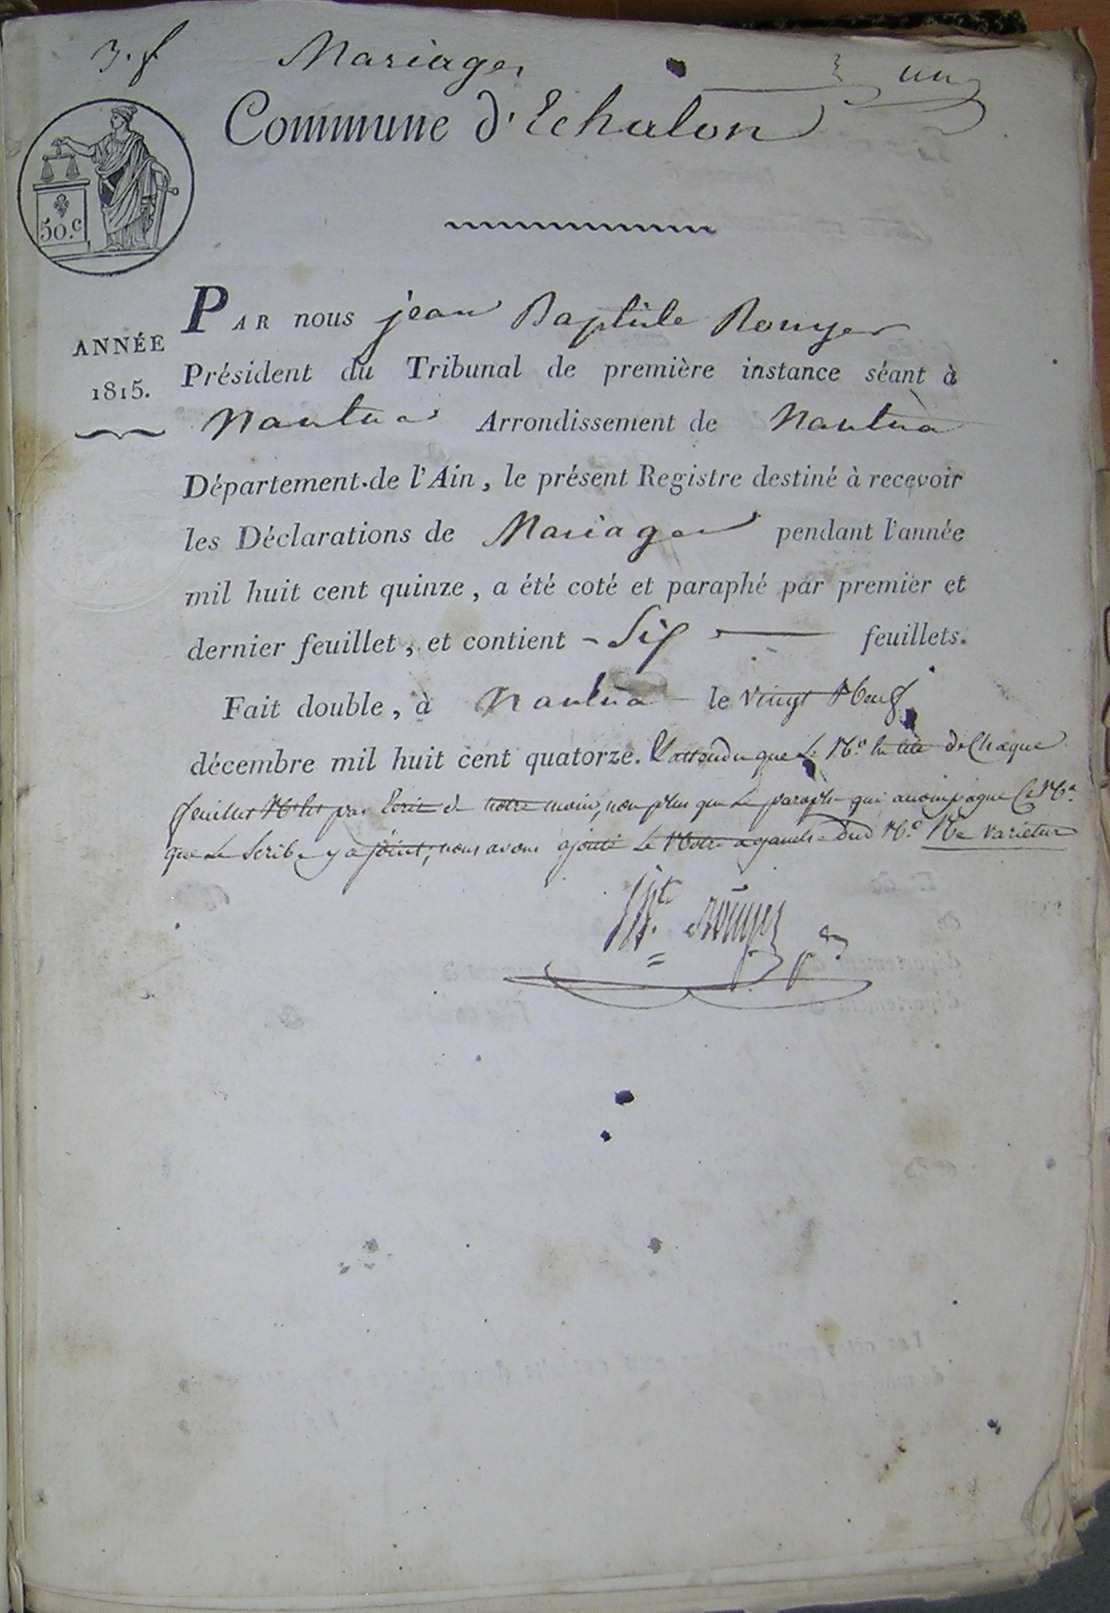 3. f Mariages un
Commune d'Echalon
50.c
ANNÉE
1815.
PAR nous jean Baptiste Rouyer
Président du Tribunal de première instance séant à
Nantua Arrondissement de Nantua
Département de l'Ain, le présent Registre destiné à recevoir
les Déclarations de Mariages pendant l'année
mil huit cent quinze, a été coté et paraphé par premier et
dernier feuillet, et contient - Six feuillets.
Fait double, à Nantua le vingt Neuf
décembre mil huit cent quatorze. Et attendu que Le N.o en tete de Chaque
feuillet N'est pas Ecrit de notre main, non plus que Le paraphe qui accompagne Ce N.o
que Le Scribe y a joint, nous avons ajouté Le Notre a gauche dud N.o Ne varietur
Rouyer